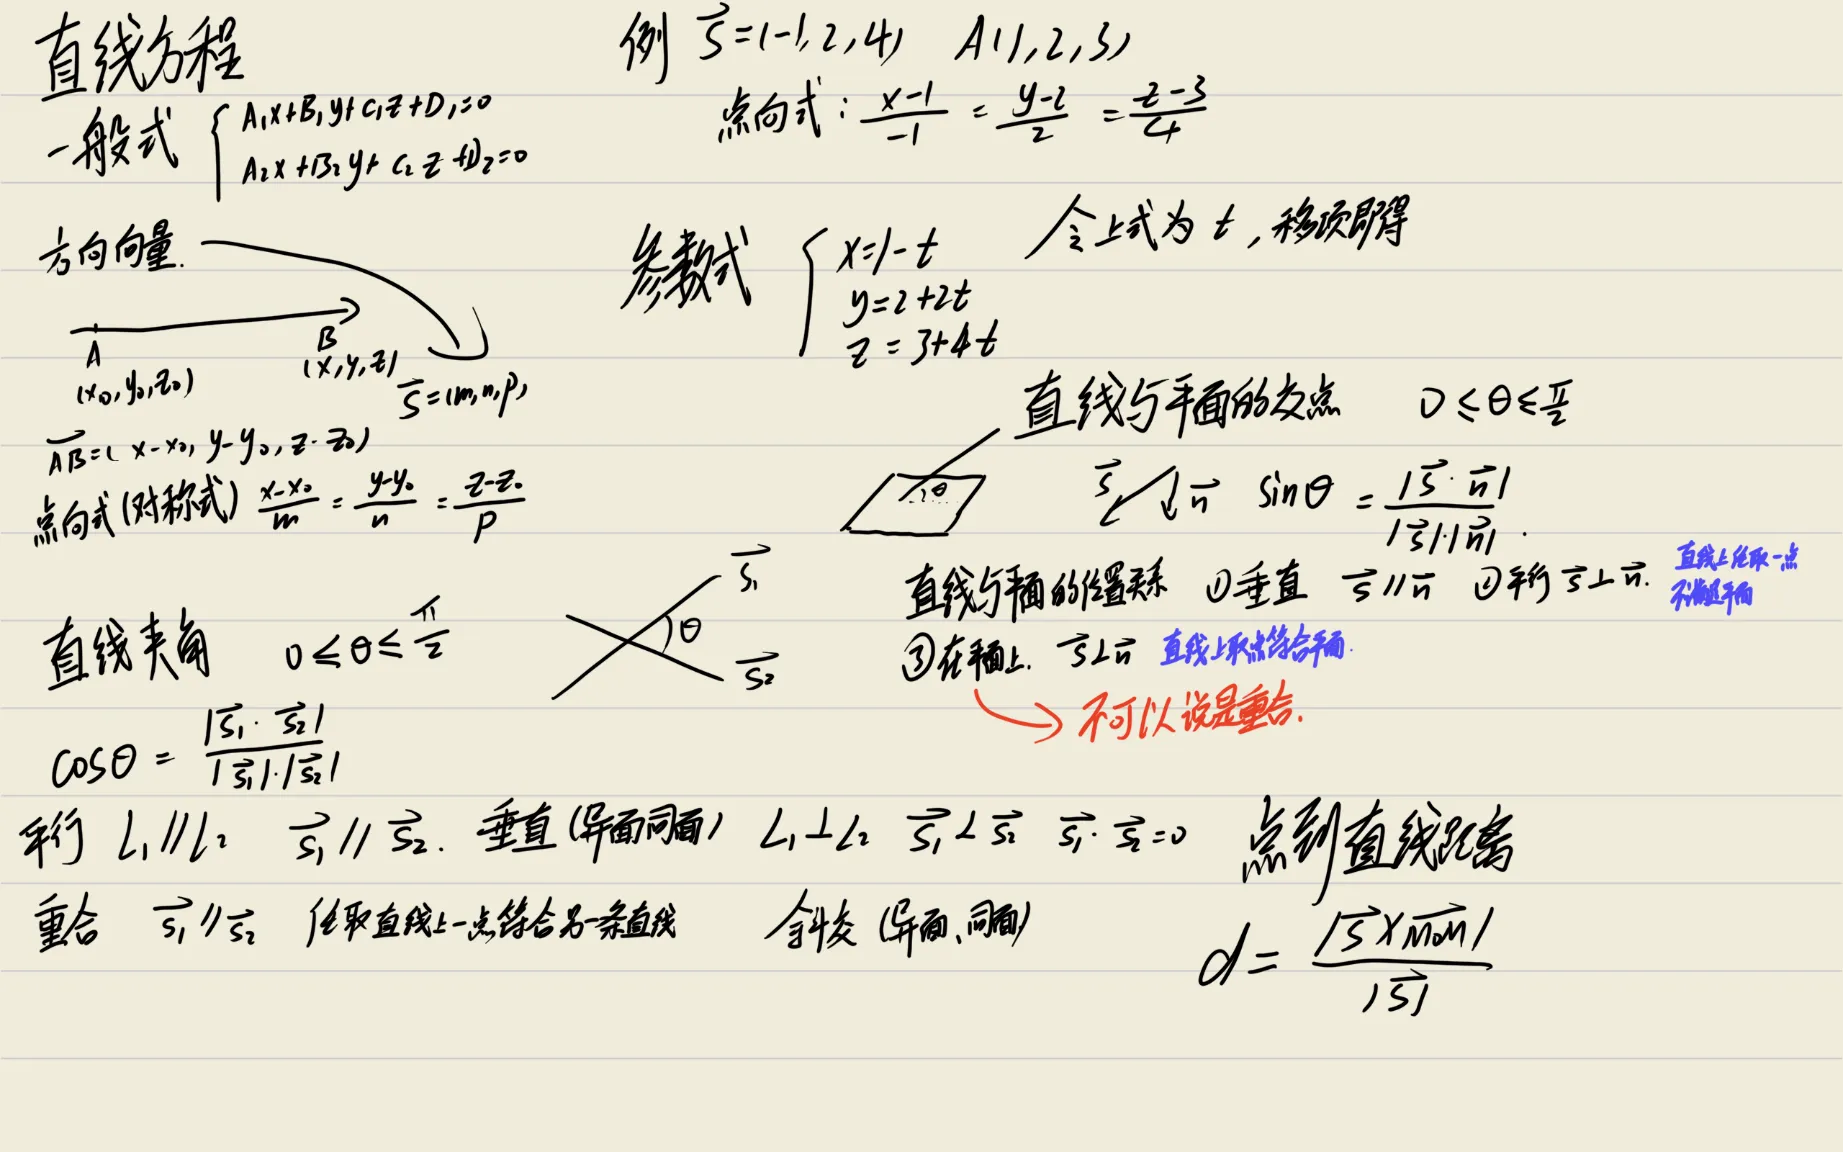 直线方程
一般式 { A₁x+B₁y+C₁z+D₁=0
A₂x+B₂y+C₂z+D₂=0
方向向量.
A
(x₀,y₀,z₀)
B
(x,y,z)
s⃗=(m,n,p)
AB⃗=(x-x₀, y-y₀, z-z₀)
点向式(对称式) (x-x₀)/m = (y-y₀)/n = (z-z₀)/p
例 s⃗=(-1,2,4) A(1,2,3)
点向式: (x-1)/-1 = (y-2)/2 = (z-3)/4
参数式 { x=1-t
y=2+2t
z=3+4t
令上式为 t,移项即得
直线与平面的交点 0≤θ≤π/2
θ
s⃗ n⃗ sinθ = |s⃗·n⃗|/|s⃗|·|n⃗|.
直线与平面的位置关系 ①垂直 s⃗//n⃗ ②平行 s⃗⊥n⃗.
直线上任取一点
不满足平面
③在平面上. s⃗⊥n⃗ 直线上取点符合平面.
不可以说是重合.
直线夹角 0≤θ≤π/2
s₁⃗
θ
s₂⃗
cosθ = |s₁⃗·s₂⃗|/|s₁⃗|·|s₂⃗|
平行 L₁//L₂ s₁⃗//s₂⃗. 垂直(异面同面) L₁⊥L₂ s₁⃗⊥s₂⃗ s₁⃗·s₂⃗=0
重合 s₁⃗//s₂⃗ 任取直线上一点符合另一条直线 斜交(异面、同面)
点到直线距离
d = |s⃗×M₀M⃗|/|s⃗|